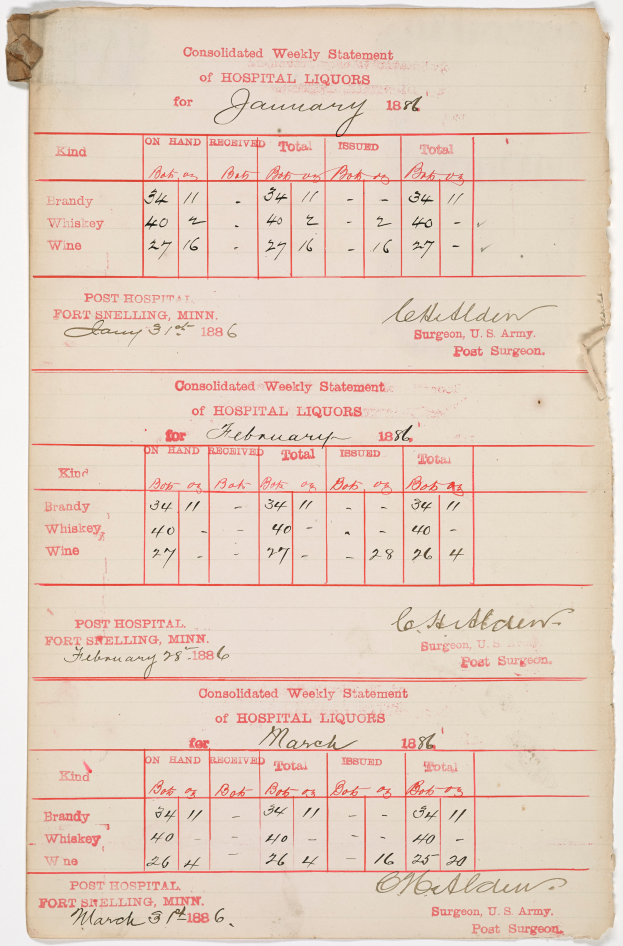 Consolidated Weekly Statement
of HOSPITAL LIQUORS
for January 1886
Kind ON HAND RECEIVED Total ISSUED Total
Bots oz Bots Bots oz Bots oz Bots oz
Brandy 34 11 - 34 11 - - 34 11
Whiskey 40 2 - 40 2 - 2 40 - ✓
Wine 27 16 - 27 16 - 16 27 - ✓
POST HOSPITAL.
FORT SNELLING, MINN.
Jany 31st 1886
C H Alden
Surgeon, U. S. Army.
Post Surgeon.
Consolidated Weekly Statement
of HOSPITAL LIQUORS
for February 1886
Kind ON HAND RECEIVED Total ISSUED Total
Bots oz Bots Bots oz Bots oz Bots oz
Brandy 34 11 - 34 11 - - 34 11
Whiskey 40 - - 40 - - - 40 -
Wine 27 - - 27 - - 28 26 4
POST HOSPITAL.
FORT SNELLING, MINN.
February 28th 1886
C. H. Alden.
Surgeon, U. S. Army
Post Surgeon.
Consolidated Weekly Statement
of HOSPITAL LIQUORS
for March 1886
Kind ON HAND RECEIVED Total ISSUED Total
Bots oz Bots Bots oz Bots oz Bots oz
Brandy 34 11 - 34 11 - - 34 11
Whiskey 40 - - 40 - - - 40 -
Wine 26 4 - 26 4 - 16 25 20
POST HOSPITAL.
FORT SNELLING, MINN.
March 31st 1886.
C H Alden.
Surgeon, U. S. Army.
Post Surgeon.